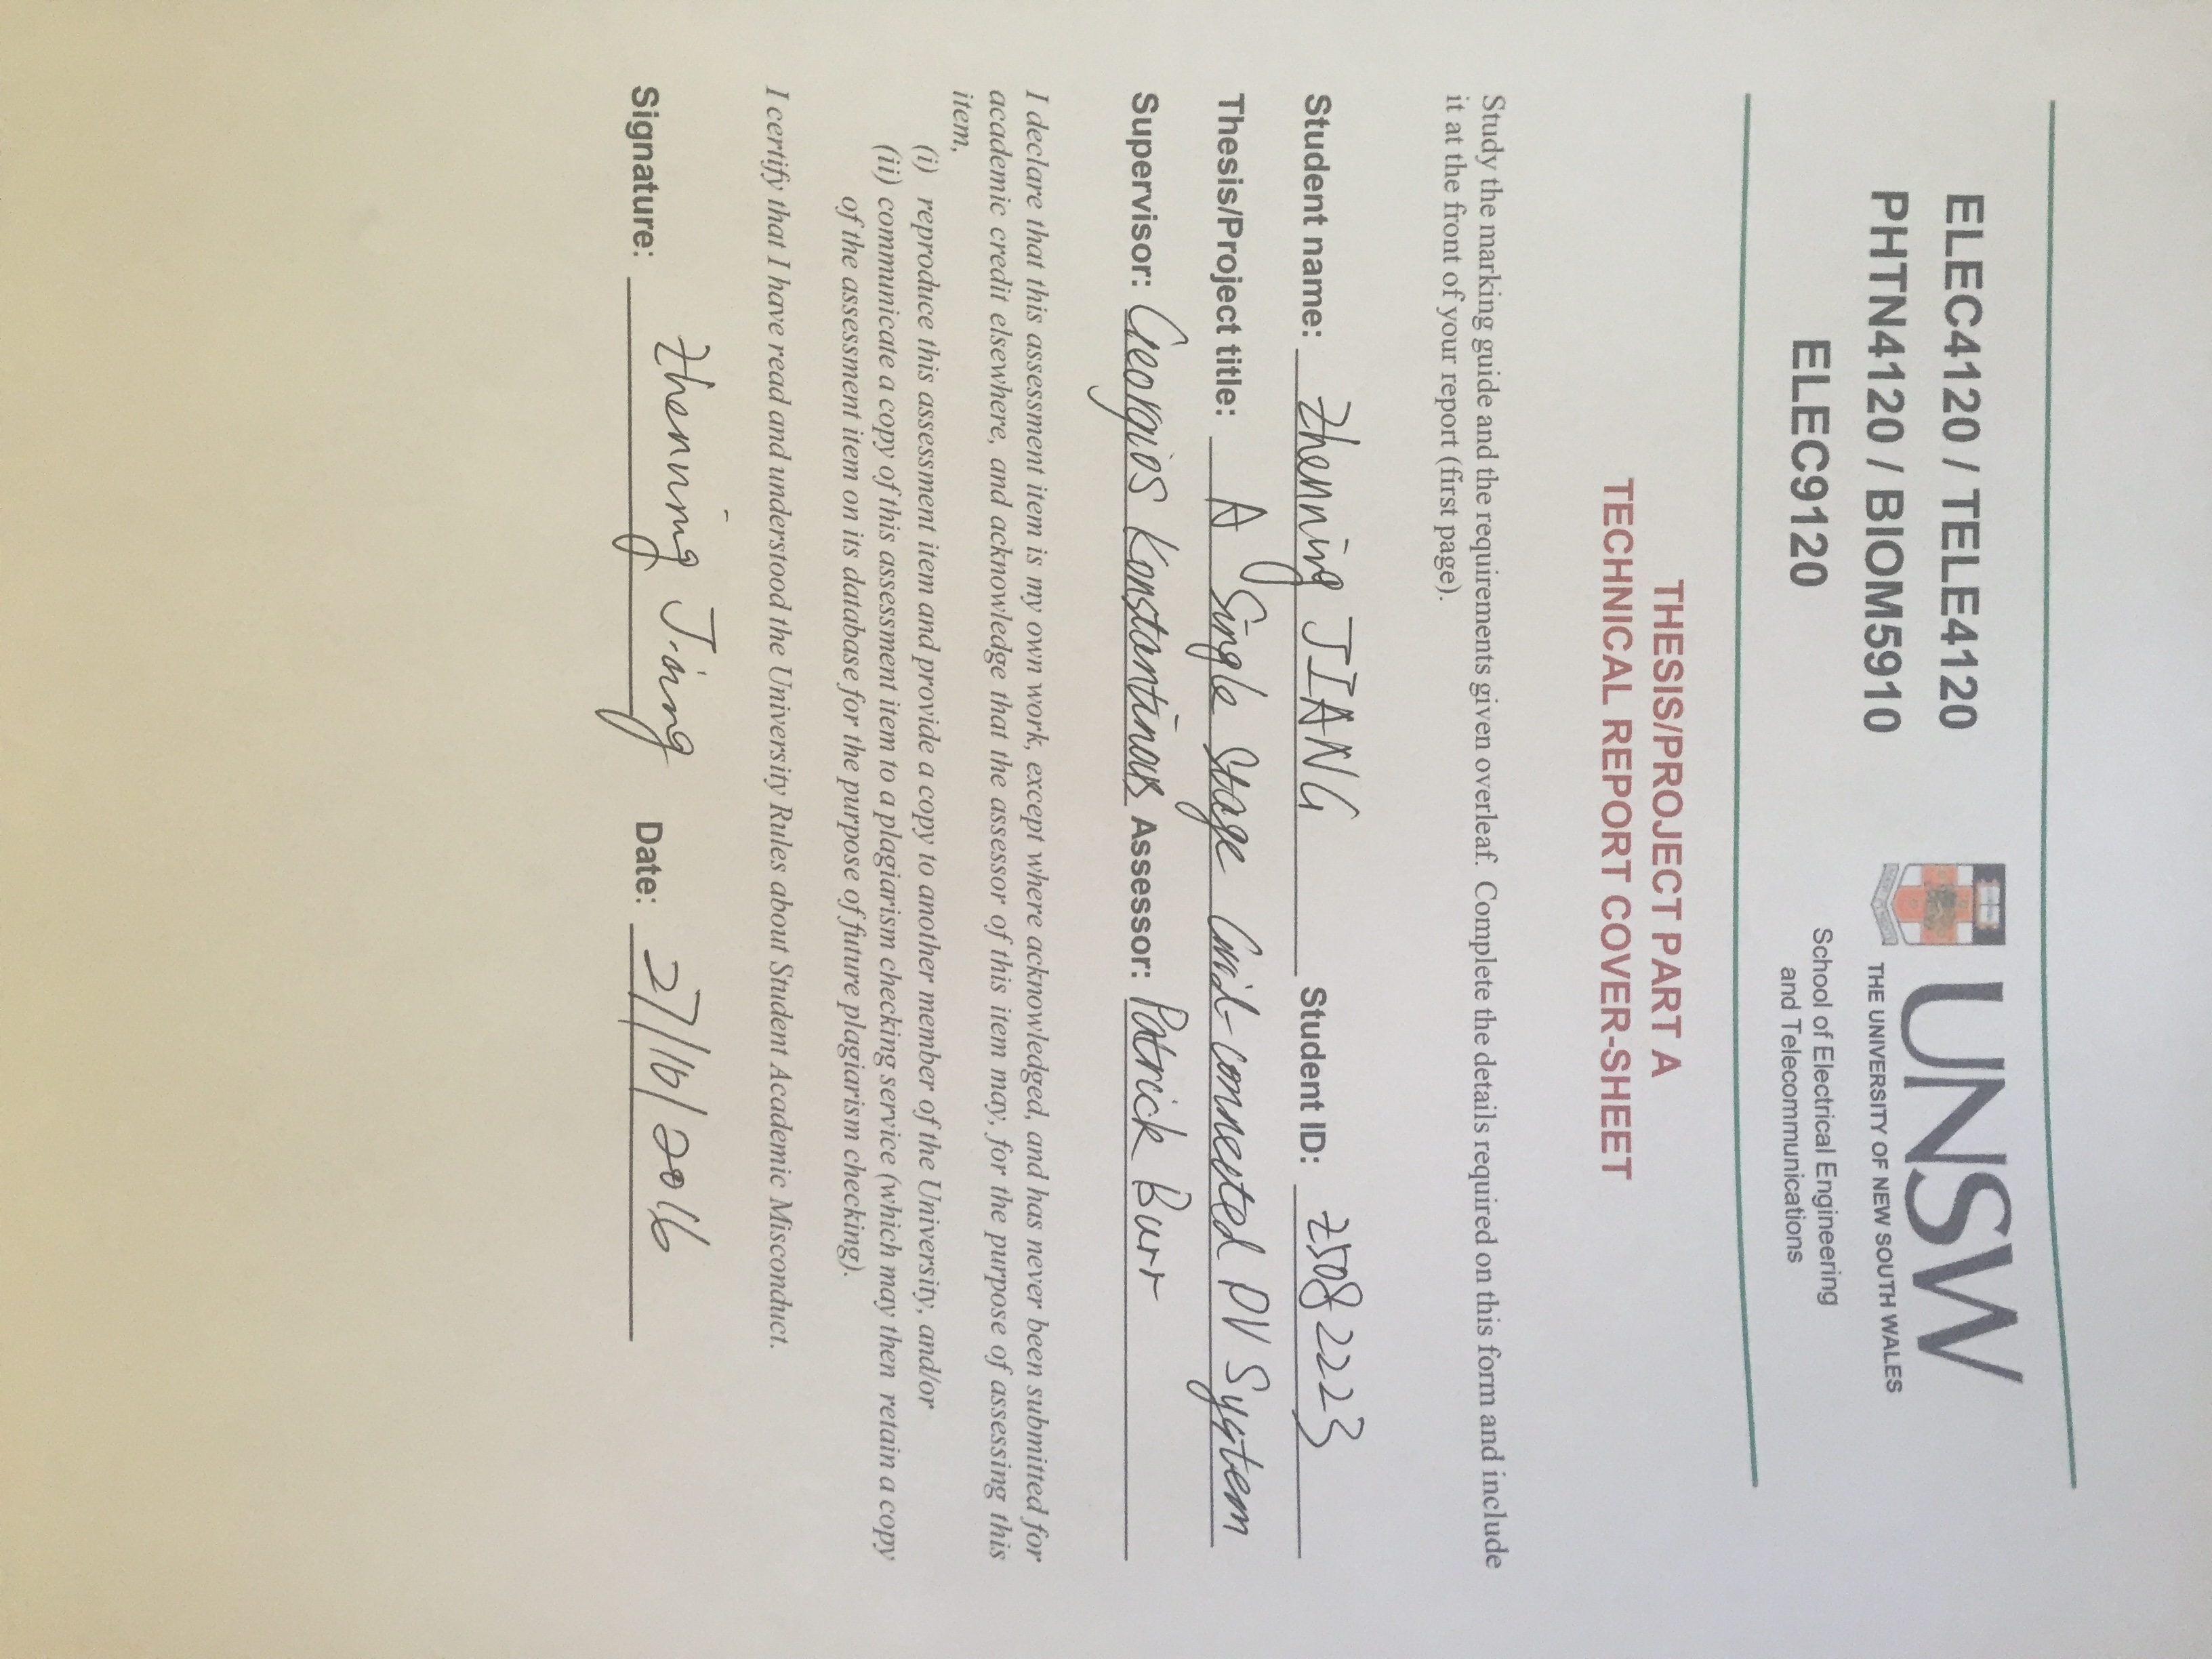 ELEC4120 / TELE4120
PHTN4120 / BIOM5910
ELEC9120
UNSW
THE UNIVERSITY OF NEW SOUTH WALES
School of Electrical Engineering
and Telecommunications
THESIS/PROJECT PART A
TECHNICAL REPORT COVER-SHEET
Study the marking guide and the requirements given overleaf. Complete the details required on this form and include
it at the front of your report (first page).
Student name: Zhenning JIANG Student ID: z5082223
Thesis/Project title: A Single Stage Grid-connected PV System
Supervisor: Georgios Konstantinous Assessor: Patrick Burr
I declare that this assessment item is my own work, except where acknowledged, and has never been submitted for
academic credit elsewhere, and acknowledge that the assessor of this item may, for the purpose of assessing this
item,
(i) reproduce this assessment item and provide a copy to another member of the University, and/or
(ii) communicate a copy of this assessment item to a plagiarism checking service (which may then retain a copy
of the assessment item on its database for the purpose of future plagiarism checking).
I certify that I have read and understood the University Rules about Student Academic Misconduct.
Signature: Zhenning Jiang Date: 27/10/2016